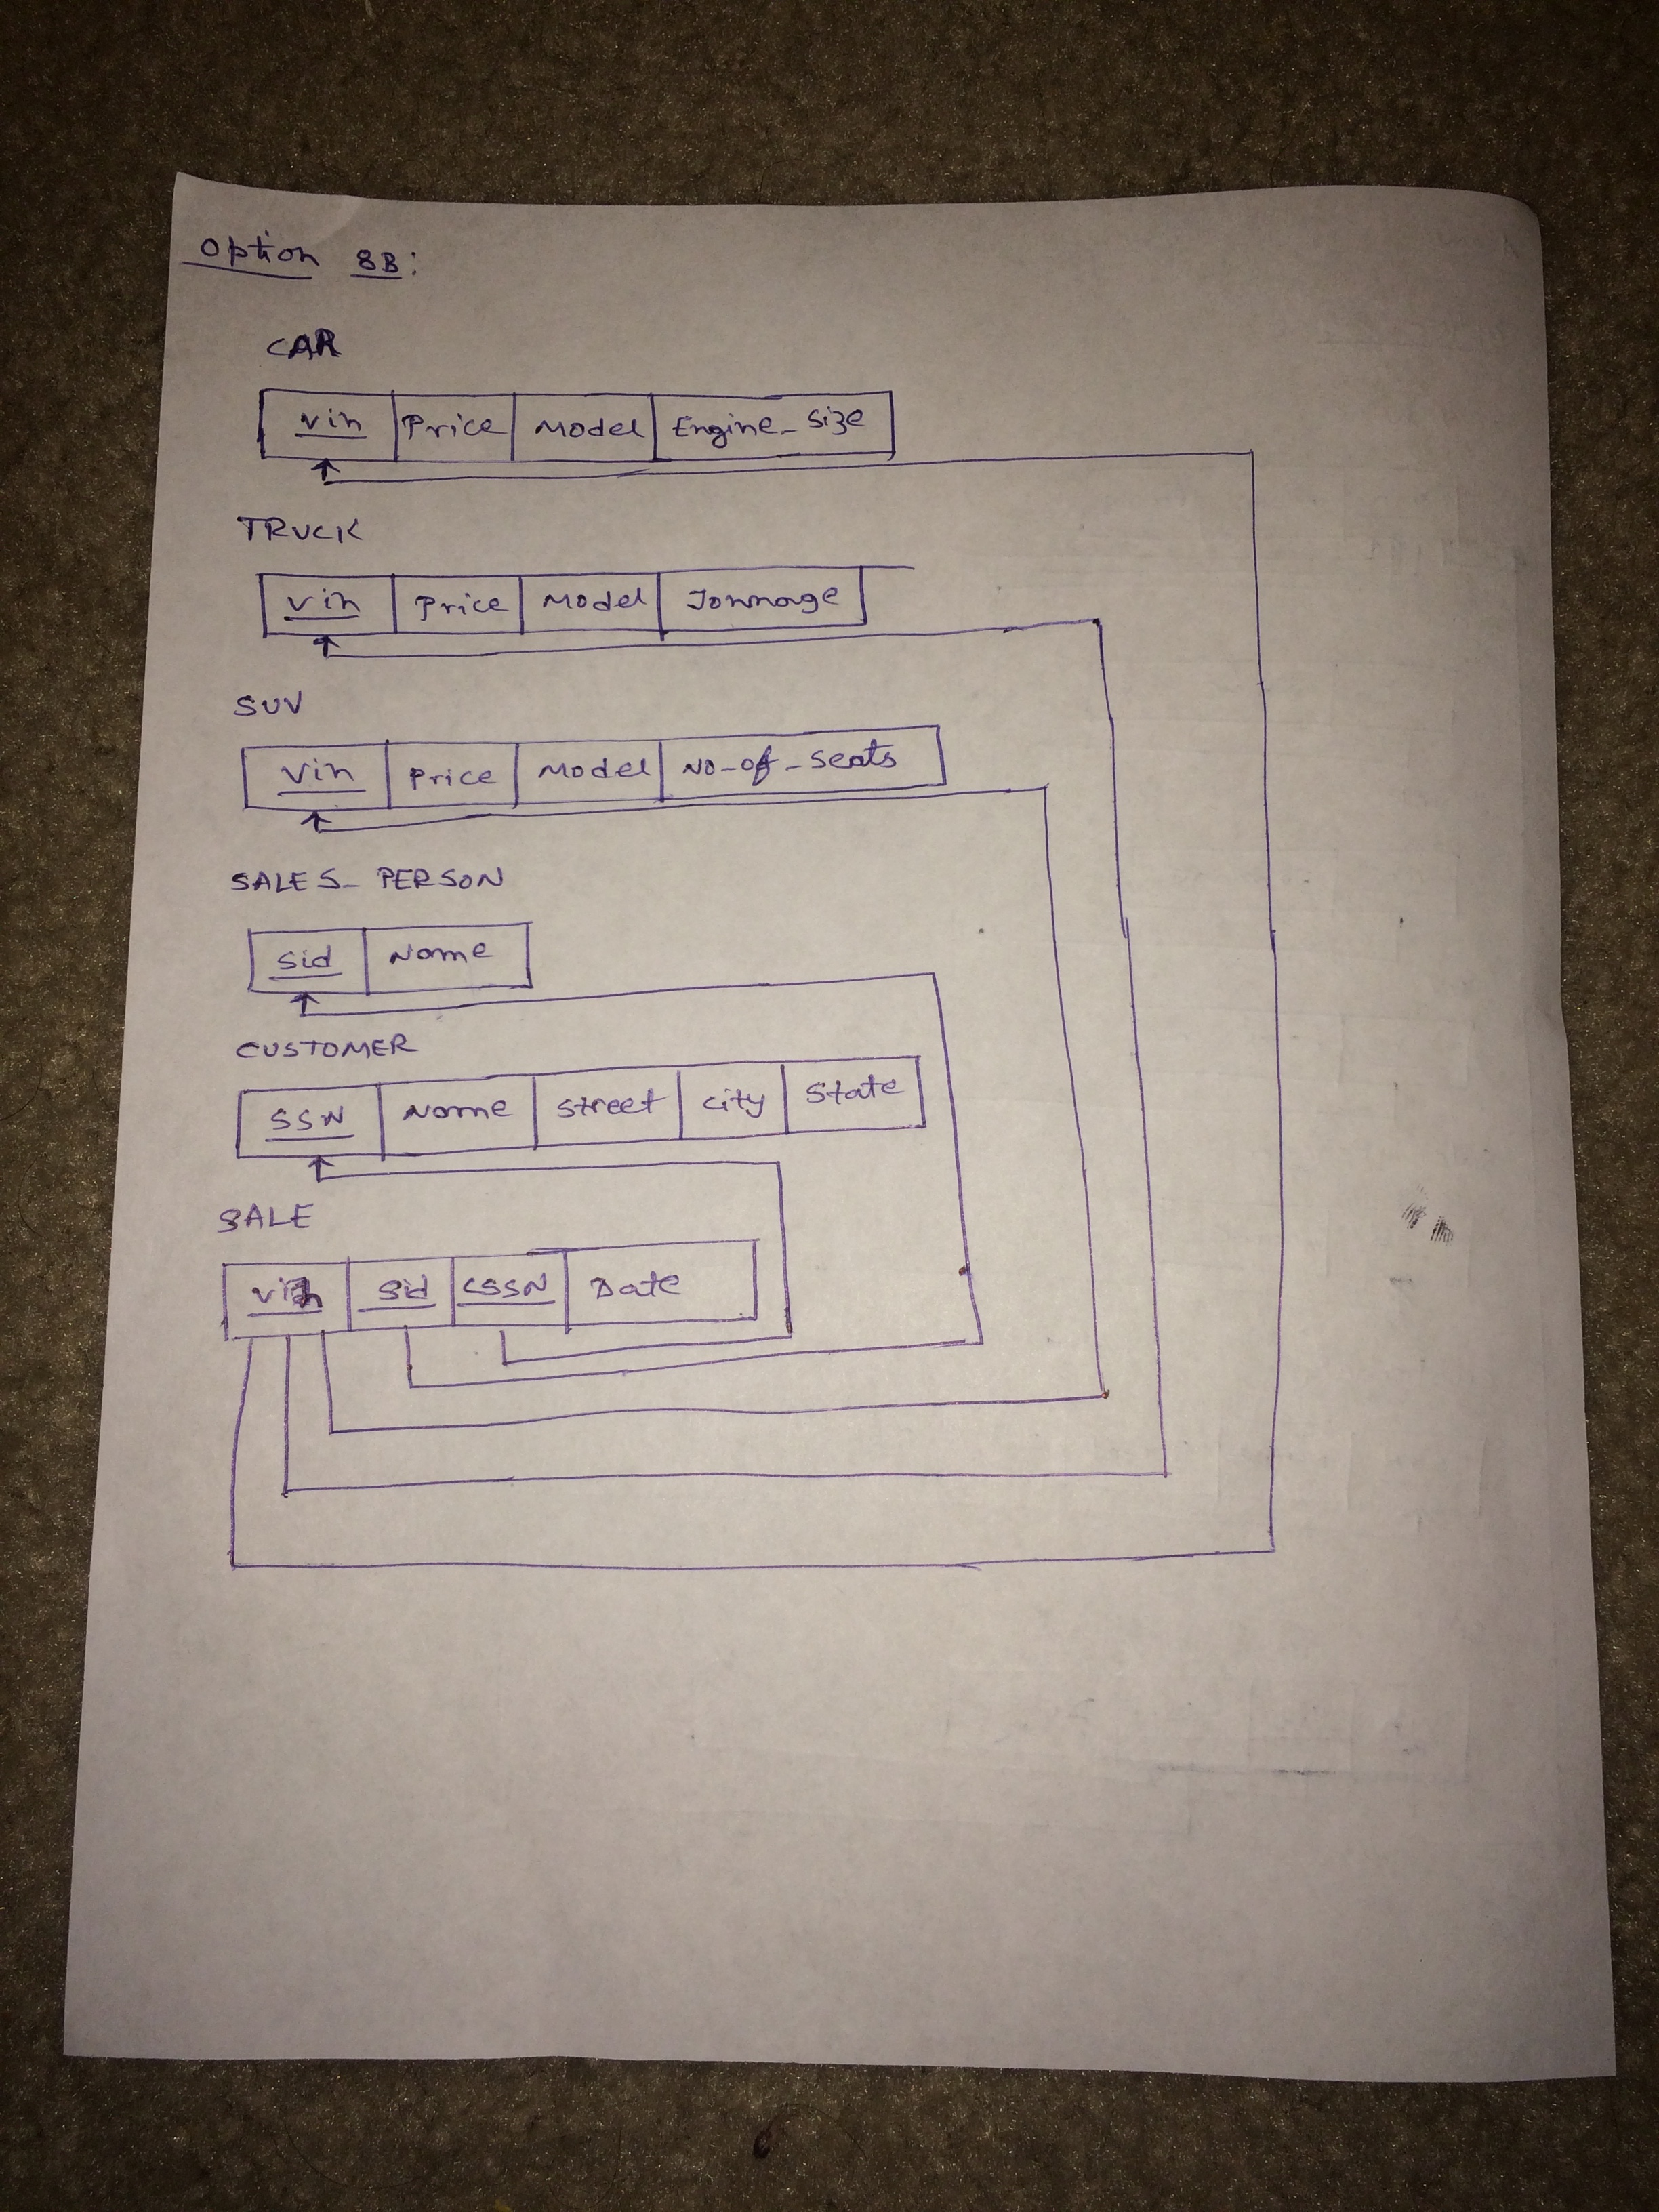 Option 8B:
CAR
Vin Price Model Engine_Size
TRUCK
Vin Price Model Tonnage
SUV
Vin Price Model No_of_Seats
SALES_PERSON
Sid Name
CUSTOMER
SSN Name Street City State
SALE
Vin Sid CSSN Date